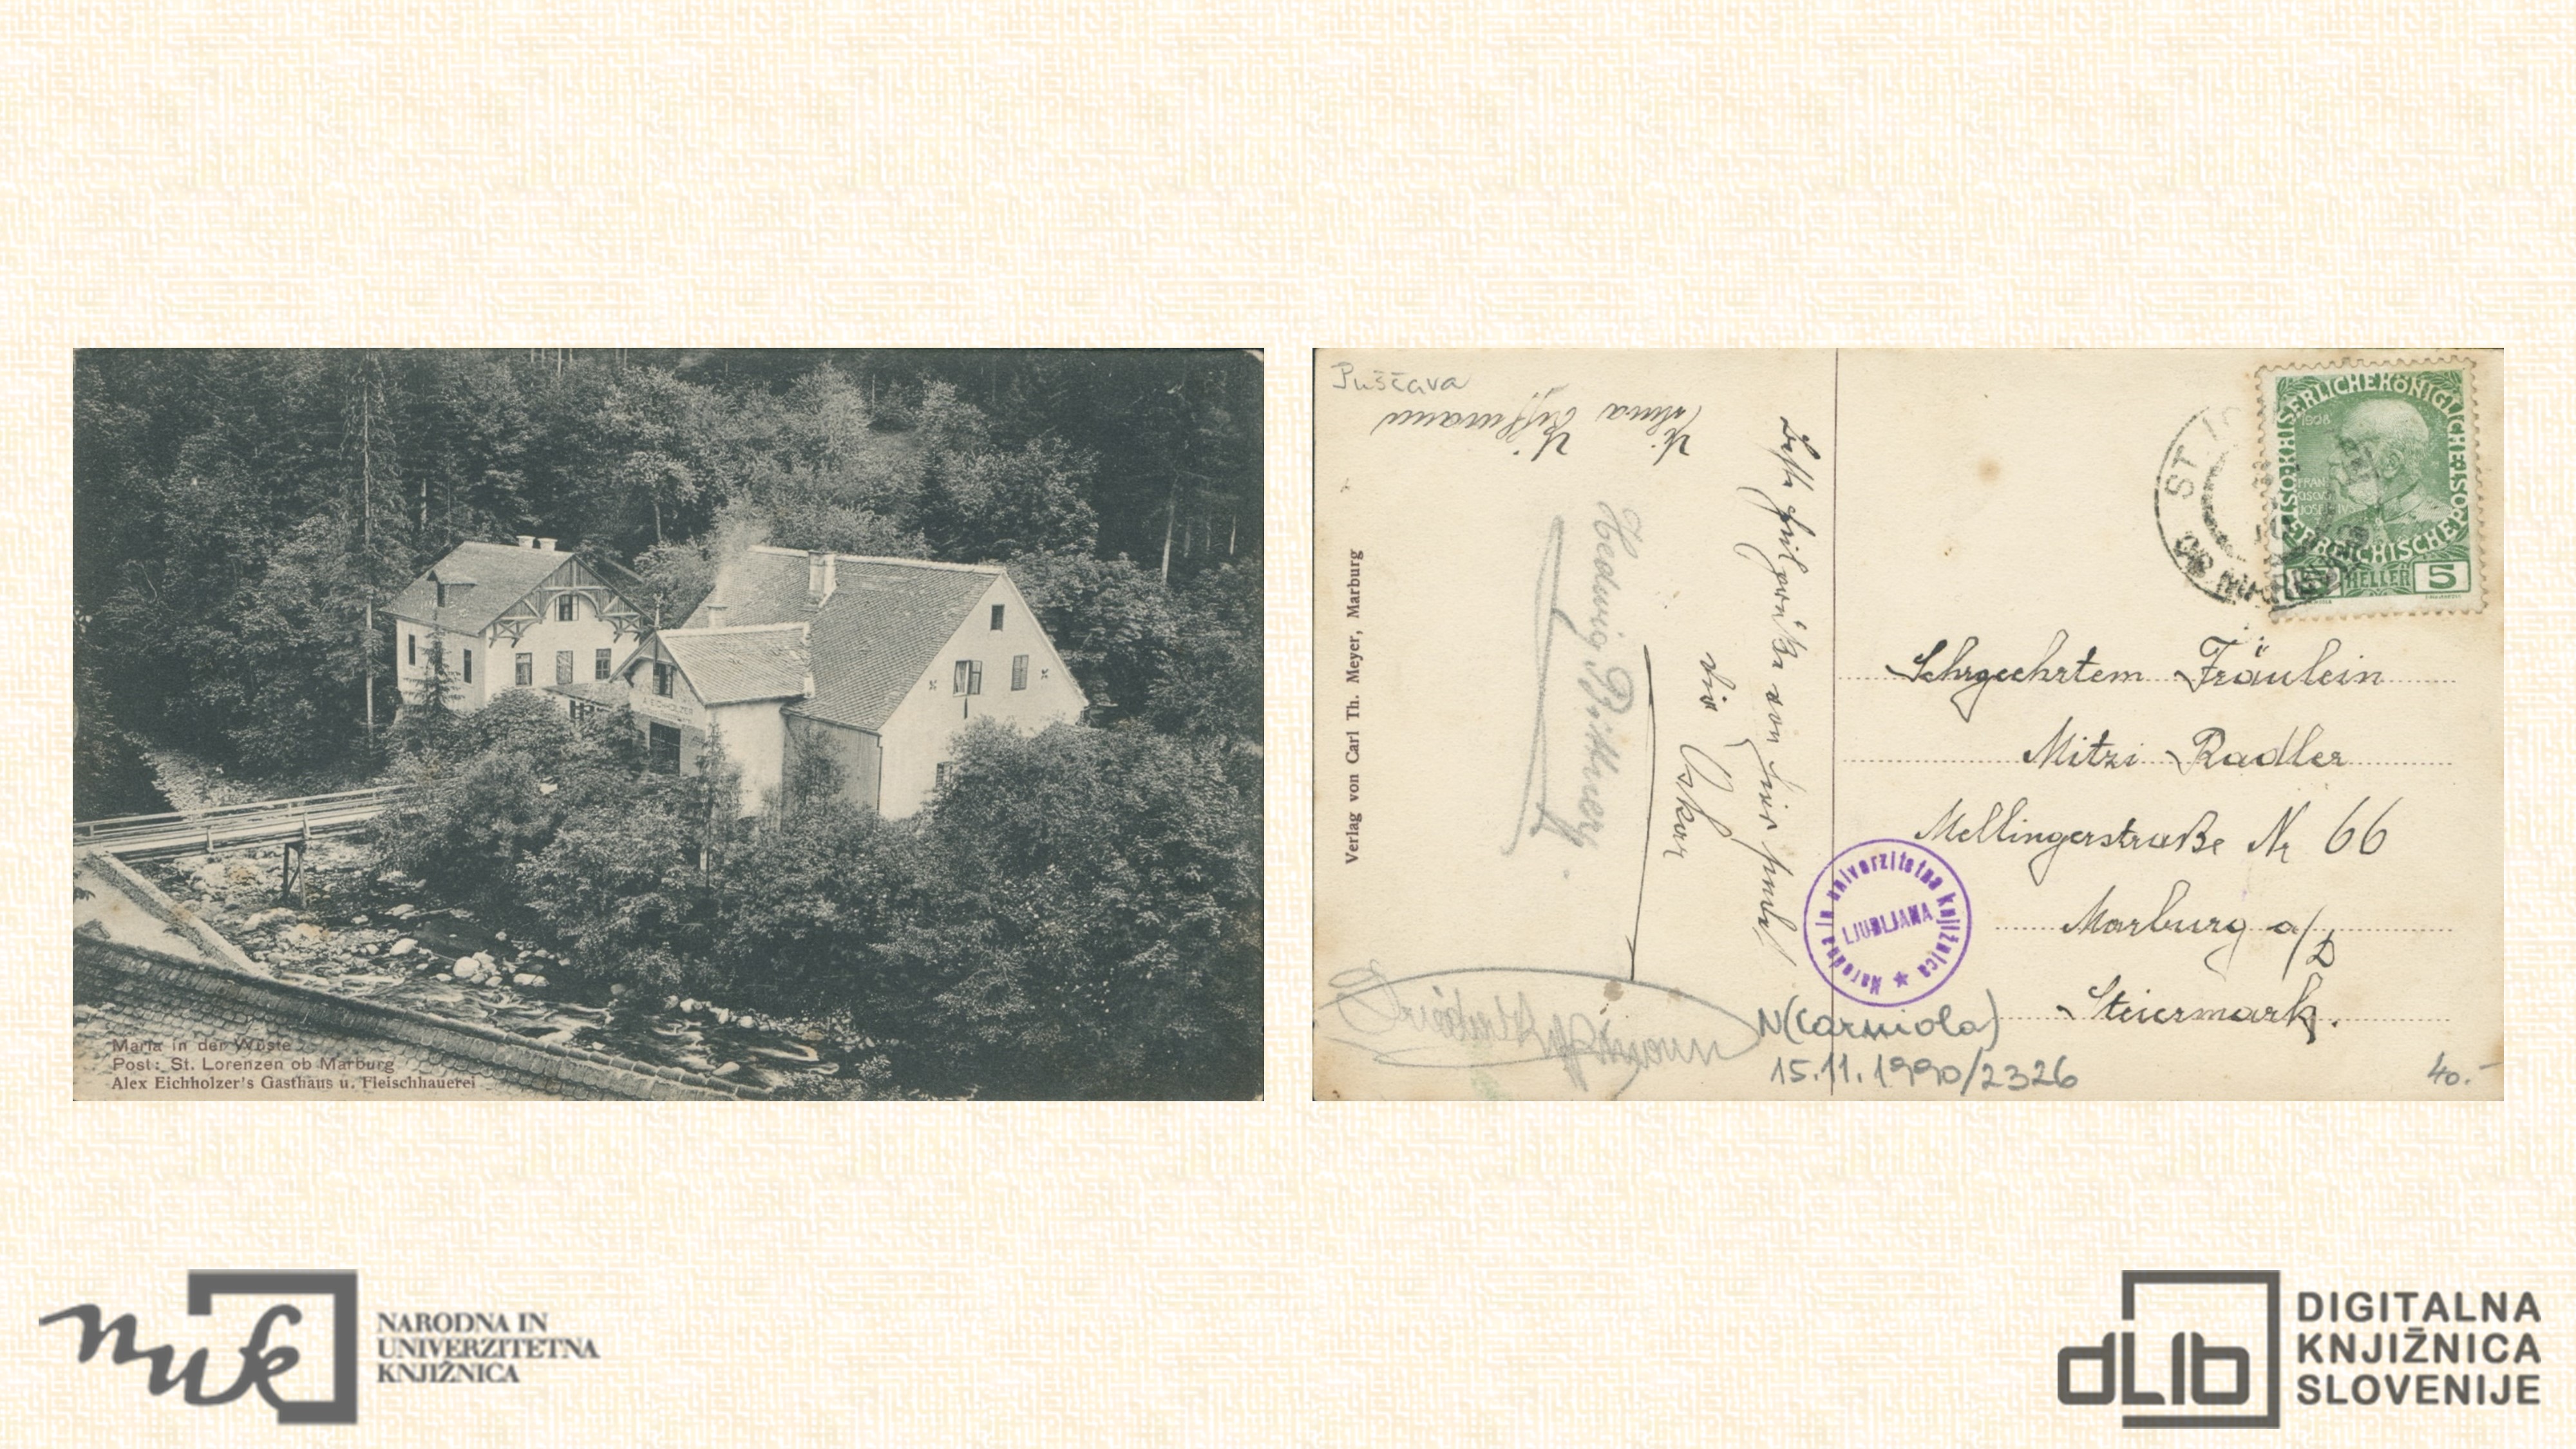 Maria in der Wüste
Post: St. Lorenzen ob Marburg
Alex Eichholzer's Gasthaus u. Fleischhauerei
Puščava
Verlag von Carl Th. Meyer, Marburg
Hedwig
von hier
Oskar
ST.
OB
KAISERLICHEKÖNIGLICHE
ÖSTERREICHISCHE
1908
HELLER 5
Sehrgeehrtem Fräulein
Mitzi Radler
Mellingerstraße Nr 66
Marburg a/D
Steiermark.
Narodna in univerzitetna knjižnica
LJUBLJANA
N(Carniola)
15.11.1990/2326
40.-
nuk
NARODNA IN
UNIVERZITETNA
KNJIŽNICA
dLib
DIGITALNA
KNJIŽNICA
SLOVENIJE